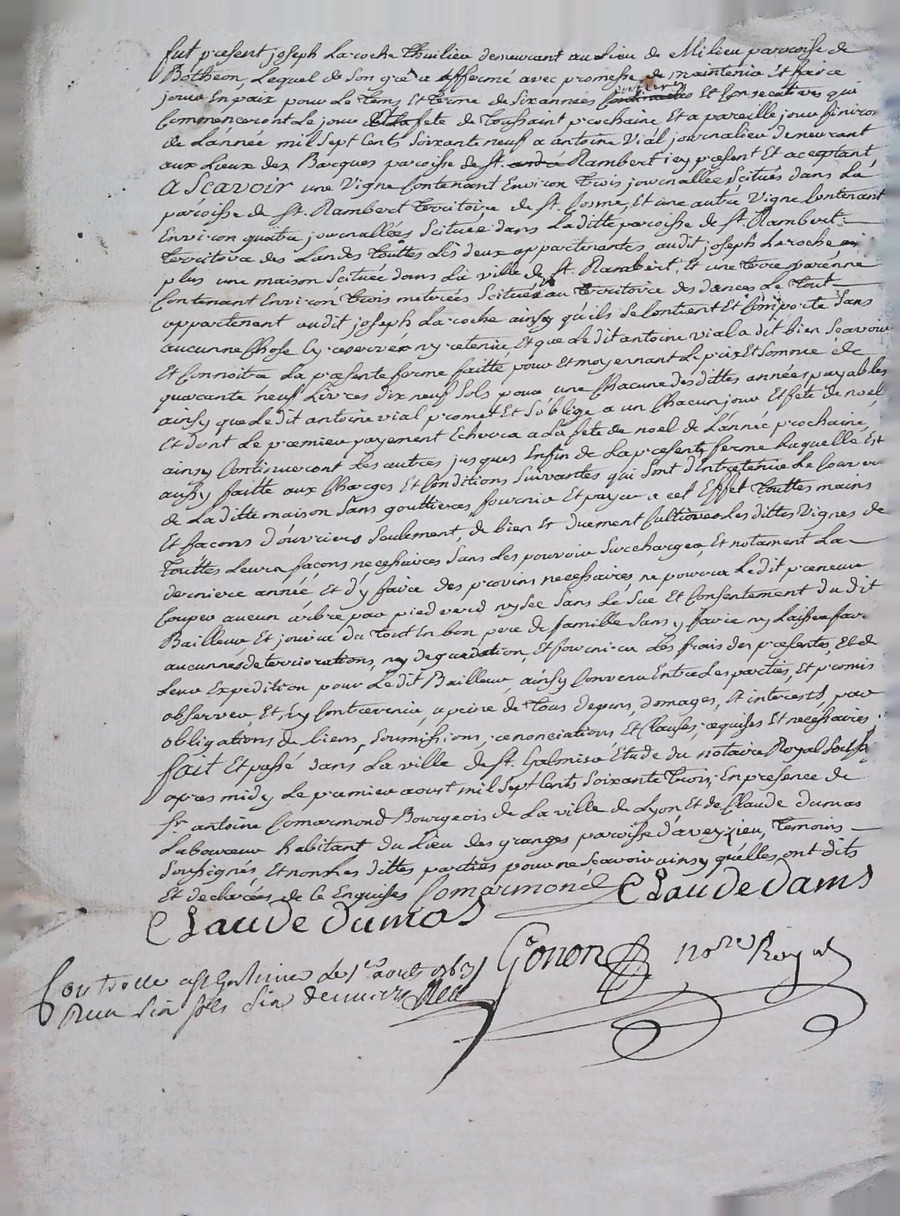 fut present joseph Laroche Thuilier demeurant au Lieu de Milieu paroisse de
Botheon, Lequel de son gré a affermé avec promesse de maintenir Et faire
jouir En paix pour Le tems Et terme de six années Et Consecutives qui
Commenceront Le jour fete de Toussaint prochaine Et a pareille jour finiront
de L'année mil sept cents soixante neuf a antoine Vial journalier demeurant
aux Lieux des Barques paroisse de st. Rambert icy present Et aceptant
A Scavoir une Vigne Contenant Environ Trois journallées Scituée dans La
paroisse de St. Rambert Territoire de st. Cosme, Et une autre Vigne Contenant
Environ quatre journallées Scituée dans Laditte paroisse de st. Rambert
Territoire des Landes Touttes Les deux appartenantes audit joseph Laroche
plus une maison Scituée dans La ville de St. Rambert, Et une terre
Contenant Environ Trois meterées Scituée au Territoire des Le Tout
appartenant audit joseph Laroche ainsy qu'ils se Contient Et Comporte sans
aucunne Chose y reserver ny retenir Et que Ledit antoine vial a dit bien Scavoir
Et Connoitre La presente ferme faitte pour Et moyennant Le prix Et somme de
quarante neuf Livres dix neuf sols pour une Chacune des dittes années payables
ainsy que Ledit antoine vial promet Et s'oblige a un Chacun jour Et fete de noel
Et dont Le premier payement Echerra a La fete de noel de L'année prochaine,
ainsy Continueront Les autres jusques Enfin de La presente ferme Laquelle Est
aussy faitte aux Charges Et Conditions suivantes qui sont d'entretenir Le couvert
de Laditte maison sans gouttieres fournir Et payer a cet Effet Touttes mains
Et facons d'ouvriers seulement, de bien Et duement Cultiver Les dittes Vignes de
Touttes Leurs facons necessaires sans Les pouvoir surcharger, Et notament La
derniere année Et d'y faire des provins necessaires, ne pourra Ledit preneur
Couper aucun arbre par pied verd ny sec sans Le sue Et Consentement du dit
Bailleur, Et jouira du Tout En bon pere de famille sans y faire ny Laisser faire
aucunnes deterriorations, ny degradation, Et fournira Les frais des presentes, Et de
Leur Expedition pour Ledit Bailleur, ainsy Convenu Entre Les parties, Et promis
observer Et n'y Contrevenir, a peine de Tous depens, domages, Et interests, par
obligations de biens, soumissions, renonciations Et Clauses, requises Et necessaires
fait Et passé dans La ville de St. Galmier Etude du notaire Royal
apres midy Le premier aoust mil sept Cents soixante Trois, En presence de
sr. antoine Comarmond Bourgeois de La ville de Lyon Et de Claude dumas
Laboureur habitant du Lieu des granges paroisse d'aveyzieu, Temoins
soussignés, Et non Les dittes parties pour ne Scavoir ainsy qu'elles ont dits
Et declarées, de ce Enquises Comarmond CLaude dams
CLaude dumas
Gonon nore Royal
Controllé a St Galmier le 1er aout 1763
Reçu six sols six deniers